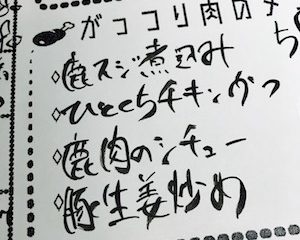 がココリ肉の
◇鹿スジ煮込み
◇ひとくちチキンカツ
◇鹿肉のシチュー
◇豚生姜炒め